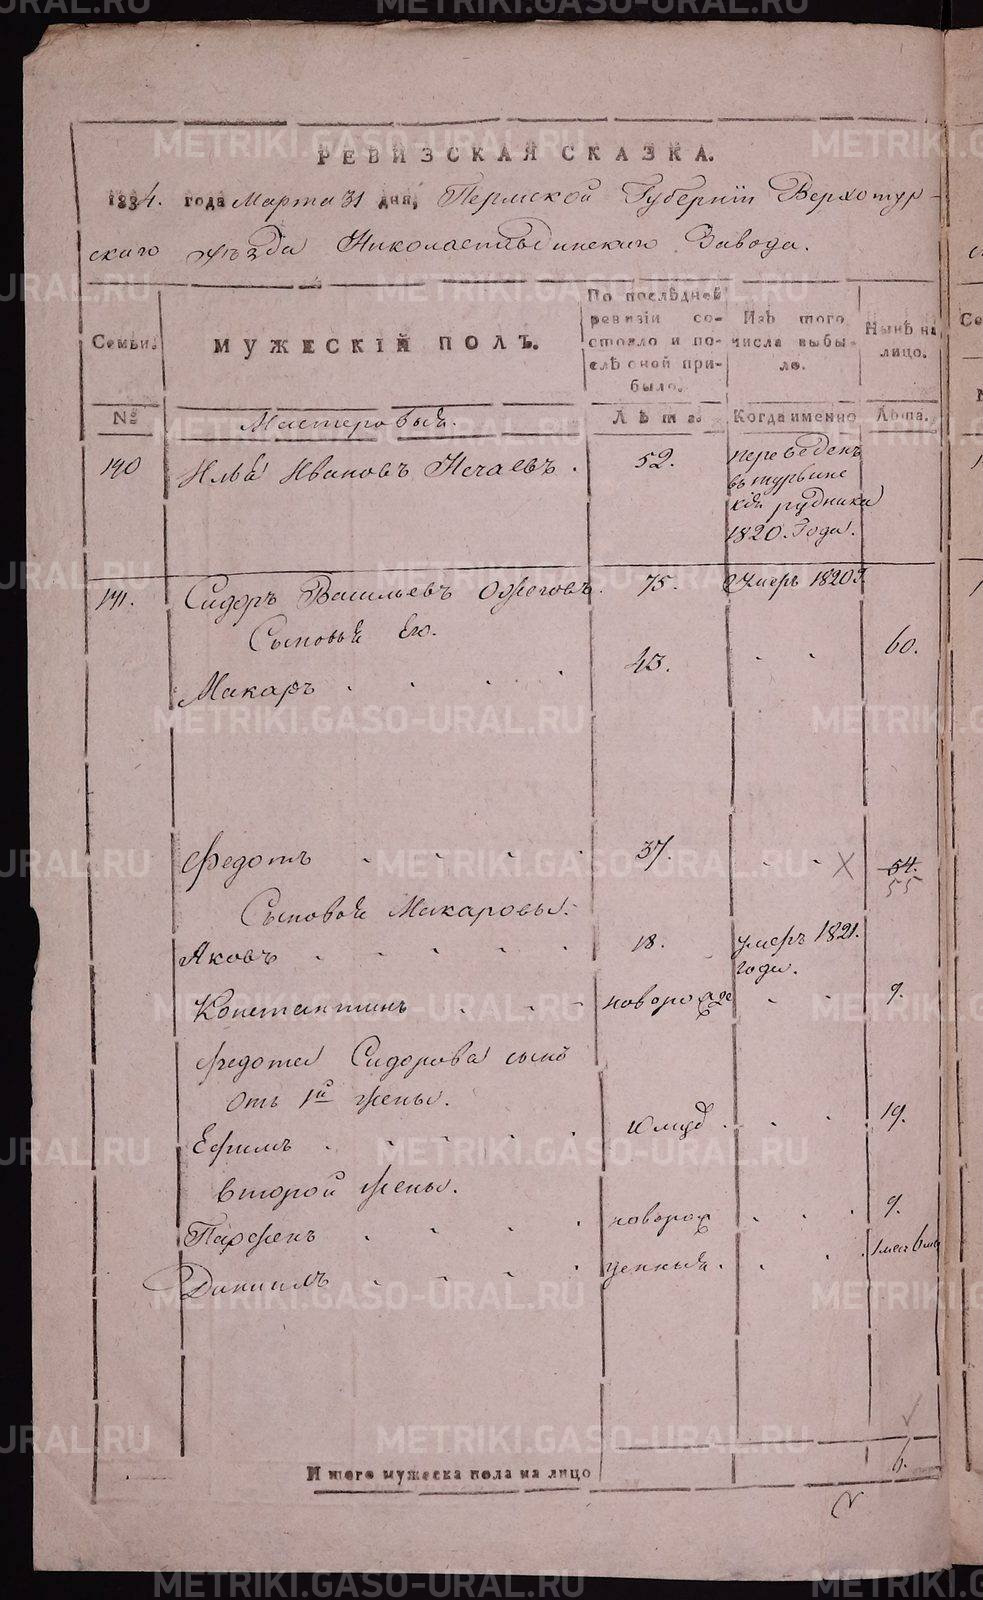 METRIKI.GASO-URAL.RU
РЕВИЗСКАЯ СКАЗКА.
1834. года Марта 31 дня, Пермской Губерніи Верхотур-
скаго уѣзда Николаепавдинскаго Завода.
Семьи.
МУЖЕСКІЙ ПОЛЪ.
По послѣдней ревизіи со-
стояло и по-
слѣ оной при-
было.
Изъ того
числа выбы-
ло.
Нынѣ на
лицо.
№
Мастеровыя.
Лѣта.
Когда именно
Лѣта.
140
Илья Ивановъ Нечаевъ.
52.
переведенъ
въ турьинс
кія рудники
1820. Года.
141.
Сидоръ Васильевъ Ожеговъ.
75.
Умеръ 1820 г.
Сыновья Его.
Макаръ
43.
60.
Федотъ
37.
54.
55
Сыновья Макаровы.
Яковъ
18.
умеръ 1821.
года.
Константинъ
новорожде
9.
Федота Сидорова сынъ
Отъ 1й жены.
Ефимъ
19.
Второй жены.
Парфенъ
новорож
9.
Даниилъ
денныя.
Итого мужеска пола на лицо
6.